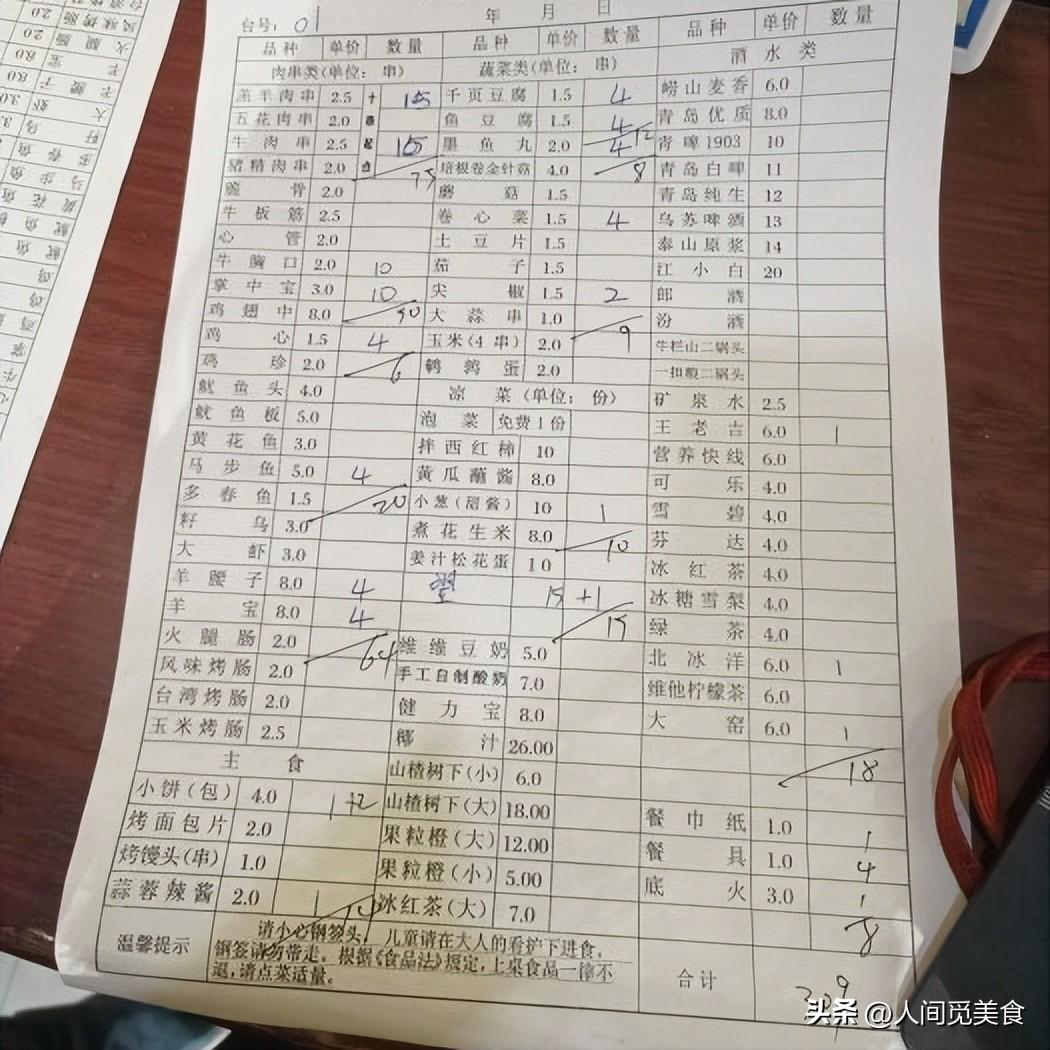 台号: 01 年 月 日
品种 单价 数量 品种 单价 数量 品种 单价 数量
肉串类(单位: 串) 蔬菜类(单位: 串) 酒水类
羔羊肉串 2.5 十串起点 15 千页豆腐 1.5 4 崂山麦香 6.0
五花肉串 2.0 鱼豆腐 1.5 4 青岛优质 8.0
牛肉串 2.5 15 墨鱼丸 2.0 4 12 青啤1903 10
猪精肉串 2.0 75 培根卷金针菇 4.0 8 青岛白啤 11
脆骨 2.0 蘑菇 1.5 青岛纯生 12
牛板筋 2.5 卷心菜 1.5 4 乌苏啤酒 13
心管 2.0 土豆片 1.5 泰山原浆 14
牛胸口 2.0 10 茄子 1.5 江小白 20
掌中宝 3.0 10 尖椒 1.5 2 郎酒
鸡翅中 8.0 50 大蒜串 1.0 9 汾酒
鸡心 1.5 4 玉米(4串) 2.0 牛栏山二锅头
鸡珍 2.0 6 鹌鹑蛋 2.0 一担粮二锅头
鱿鱼头 4.0 凉菜(单位: 份) 矿泉水 2.5
鱿鱼板 5.0 泡菜 免费1份 王老吉 6.0 1
黄花鱼 3.0 拌西红柿 10 营养快线 6.0
马步鱼 5.0 4 黄瓜蘸酱 8.0 可乐 4.0
多春鱼 1.5 20 小葱(甜酱) 10 1 雪碧 4.0
籽乌 3.0 煮花生米 8.0 10 芬达 4.0
大虾 3.0 姜汁松花蛋 10 冰红茶 4.0
羊腰子 8.0 4 15 +1 冰糖雪梨 4.0
羊宝 8.0 4 15 绿茶 4.0
火腿肠 2.0 64 维维豆奶 5.0 北冰洋 6.0 1
风味烤肠 2.0 手工自制酸奶 7.0 维他柠檬茶 6.0
台湾烤肠 2.0 健力宝 8.0 大窑 6.0 1
玉米烤肠 2.5 椰汁 26.00 18
主食 山楂树下(小) 6.0
小饼(包) 4.0 1+2 山楂树下(大) 18.00 餐巾纸 1.0 1
烤面包片 2.0 果粒橙(大) 12.00 餐具 1.0 4
烤馒头(串) 1.0 果粒橙(小) 5.00 底火 3.0 1
蒜蓉辣酱 2.0 1 14 冰红茶(大) 7.0 8
温馨提示 请小心钢签头，儿童请在大人的看护下进食，
钢签请勿带走。根据《食品法》规定，上桌食品一律不
退，请点菜适量。
合计 309
头条 @人间觅美食